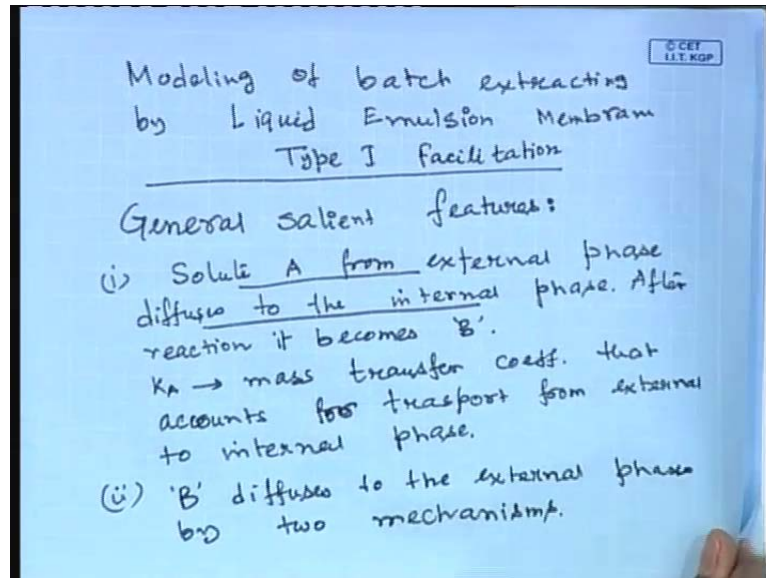 © CET
I.I.T. KGP
Modeling of batch extracting
by Liquid Emulsion Membram
Type I facilitation
General salient features:
(i) Solute A from external phase
diffuses to the internal phase. After
reaction it becomes 'B'.
KA → mass transfer coeff. that
accounts for trasport from external
to internal phase.
(ii) 'B' diffuses to the external phase
by two mechanisms.